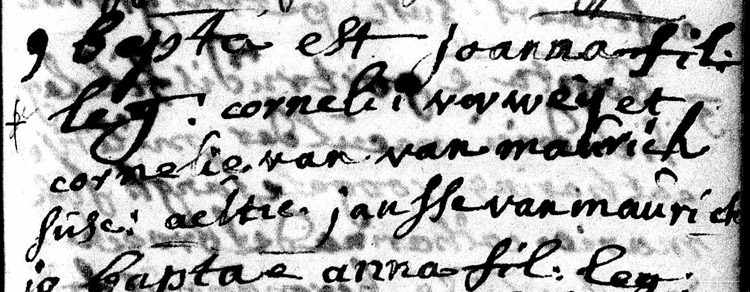 9 bapta est joanna fil:
leg: cornelii verweÿ et
cornelie. van van maûrich
sûsc: aeltie. jansse van maûrick
10 baptae anna fil: leg: